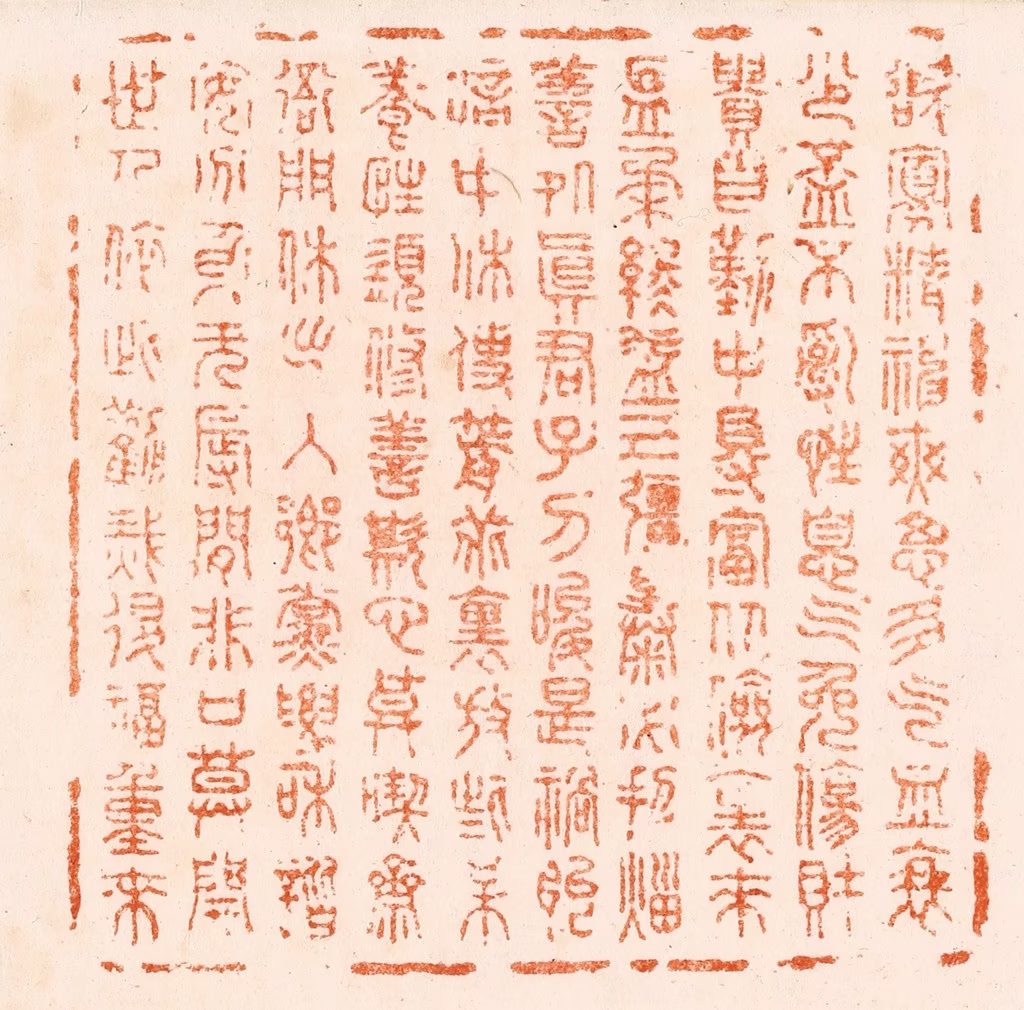 欲寡精神爽思多氣血衰
少盃不亂性忍氣免傷財
貴自勤中得富從儉裏來
溫柔終益己彊暴必招災
善処真君子刁唆是禍胎
暗中休使箭乖裏放些呆
養性須修善欺心莫喫齋
衙門休出入鄉黨要和諧
安分身无辱閒非口莫開
世人依此勸災退福重來